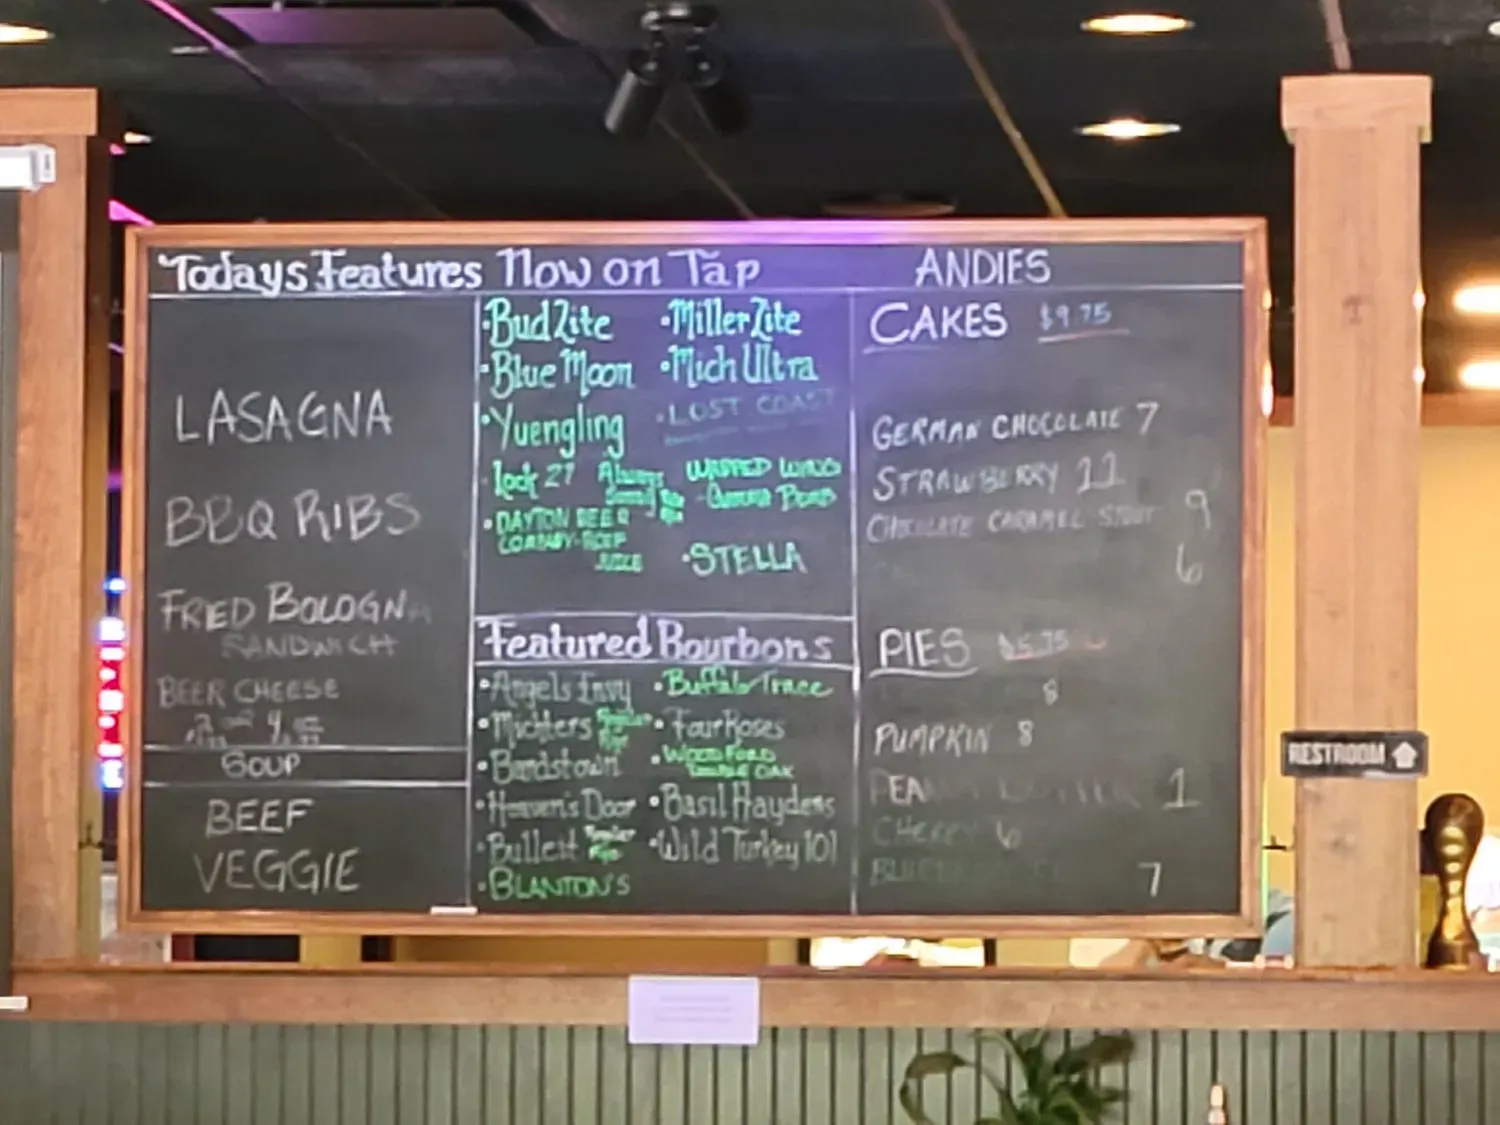 Todays Features
LASAGNA
BBQ RIBS
FRIED BOLOGNA
SANDWICH
BEER CHEESE
SOUP
BEEF
VEGGIE
Now on Tap
·Bud Lite
·Miller Lite
·Blue Moon
·Mich Ultra
·Yuengling
·LOST COAST
Lock 27 Always
WARPED WING
-GAMMA BOMB
·DAYTON BEER
COMPANY-
JUICE
·STELLA
Featured Bourbons
·Angels Envy
·Buffalo Trace
·Michters Regular Rye
·Four Roses
·Bardstown
·WOODFORD
DOUBLE OAK
·Heaven's Door
·Basil Haydens
·Bulleit Regular Rye
·Wild Turkey 101
·BLANTON'S
ANDIES
CAKES $9.75
GERMAN CHOCOLATE 7
STRAWBERRY 11
CHOCOLATE CARAMEL STOUT 9
6
PIES $5.75
8
PUMPKIN 8
PEANUT BUTTER 1
CHERRY 6
7
RESTROOM